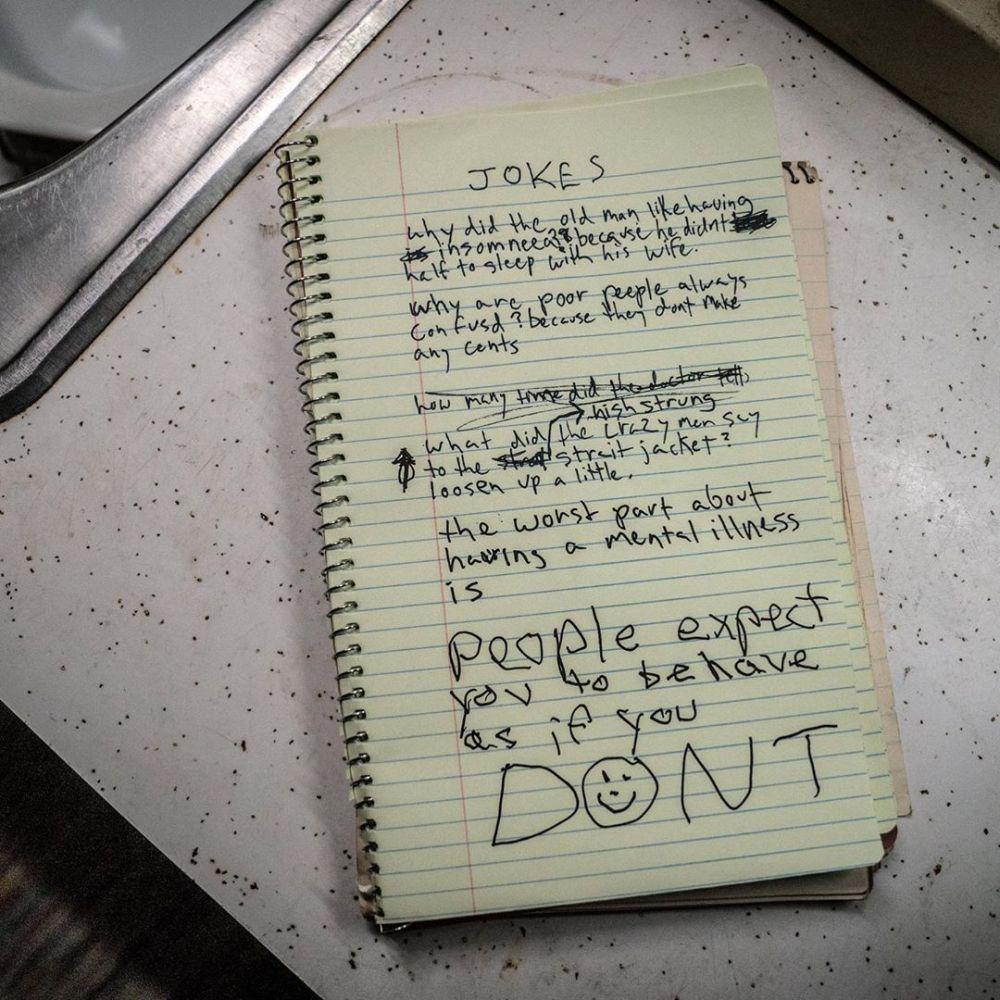 JOKES
why did the old man like having
insomneea? because he didnt
half to sleep with his wife.
why are poor peeple always
confusd? because they dont make
any cents
how many time did the doctor tells
high strung
what did the crazy man say
to the strait jacket?
loosen up a little.
the worst part about
having a mental illness
is
people expect
you to behave
as if you
DONT